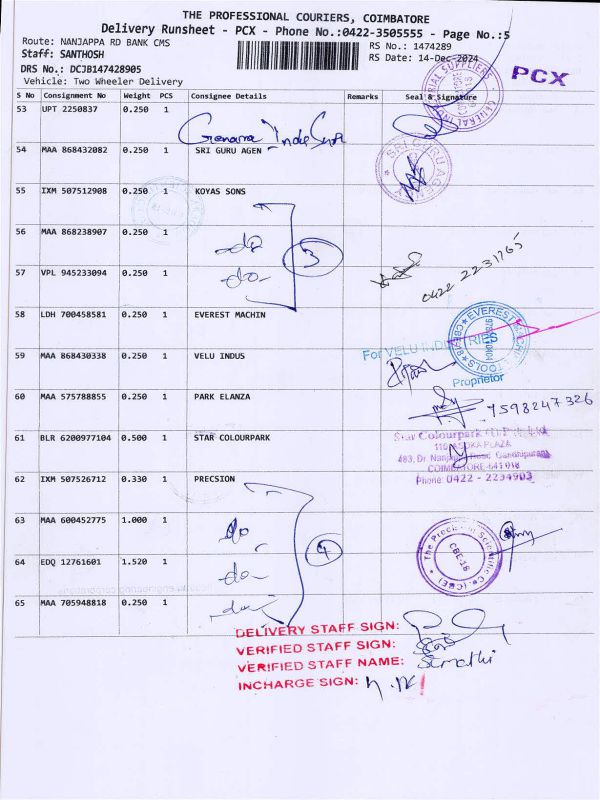 THE PROFESSIONAL COURIERS, COIMBATORE
Delivery Runsheet - PCX - Phone No.:0422-3505555 - Page No.:5
Route: NANJAPPA RD BANK CMS
RS No.: 1474289
Staff: SANTHOSH
RS Date: 14-Dec-2024
PCX
DRS No.: DCJB147428905
Vehicle: Two Wheeler Delivery
S No Consignment No Weight PCS Consignee Details Remarks Seal & Signature
53 UPT 2250837 0.250 1
54 MAA 868432082 0.250 1 SRI GURU AGEN
SRI GURU AG
55 IXM 507512908 0.250 1 KOYAS SONS
56 MAA 868238907 0.250 1 -do-
3
57 VPL 945233094 0.250 1 -do-
0422 2231765
58 LDH 700458581 0.250 1 EVEREST MACHIN
59 MAA 868430338 0.250 1 VELU INDUS
For VELU INDUSTRIES
Proprietor
60 MAA 575788855 0.250 1 PARK ELANZA
7598247326
61 BLR 6200977104 0.500 1 STAR COLOURPARK
Star Colourpark (I) Pvt. Ltd
483, Dr. Nanjappa Road, Gandhipuram
COIMBATORE-641 018
Phone: 0422 - 2234903
62 IXM 507526712 0.330 1 PRECSION
63 MAA 600452775 1.000 1 -do-
4
The Precision Scientific Co. (CBE)
CBE-18
64 EDQ 12761601 1.520 1 -do-
65 MAA 705948818 0.250 1 -do-
DELIVERY STAFF SIGN:
VERIFIED STAFF SIGN:
VERIFIED STAFF NAME:
INCHARGE SIGN: